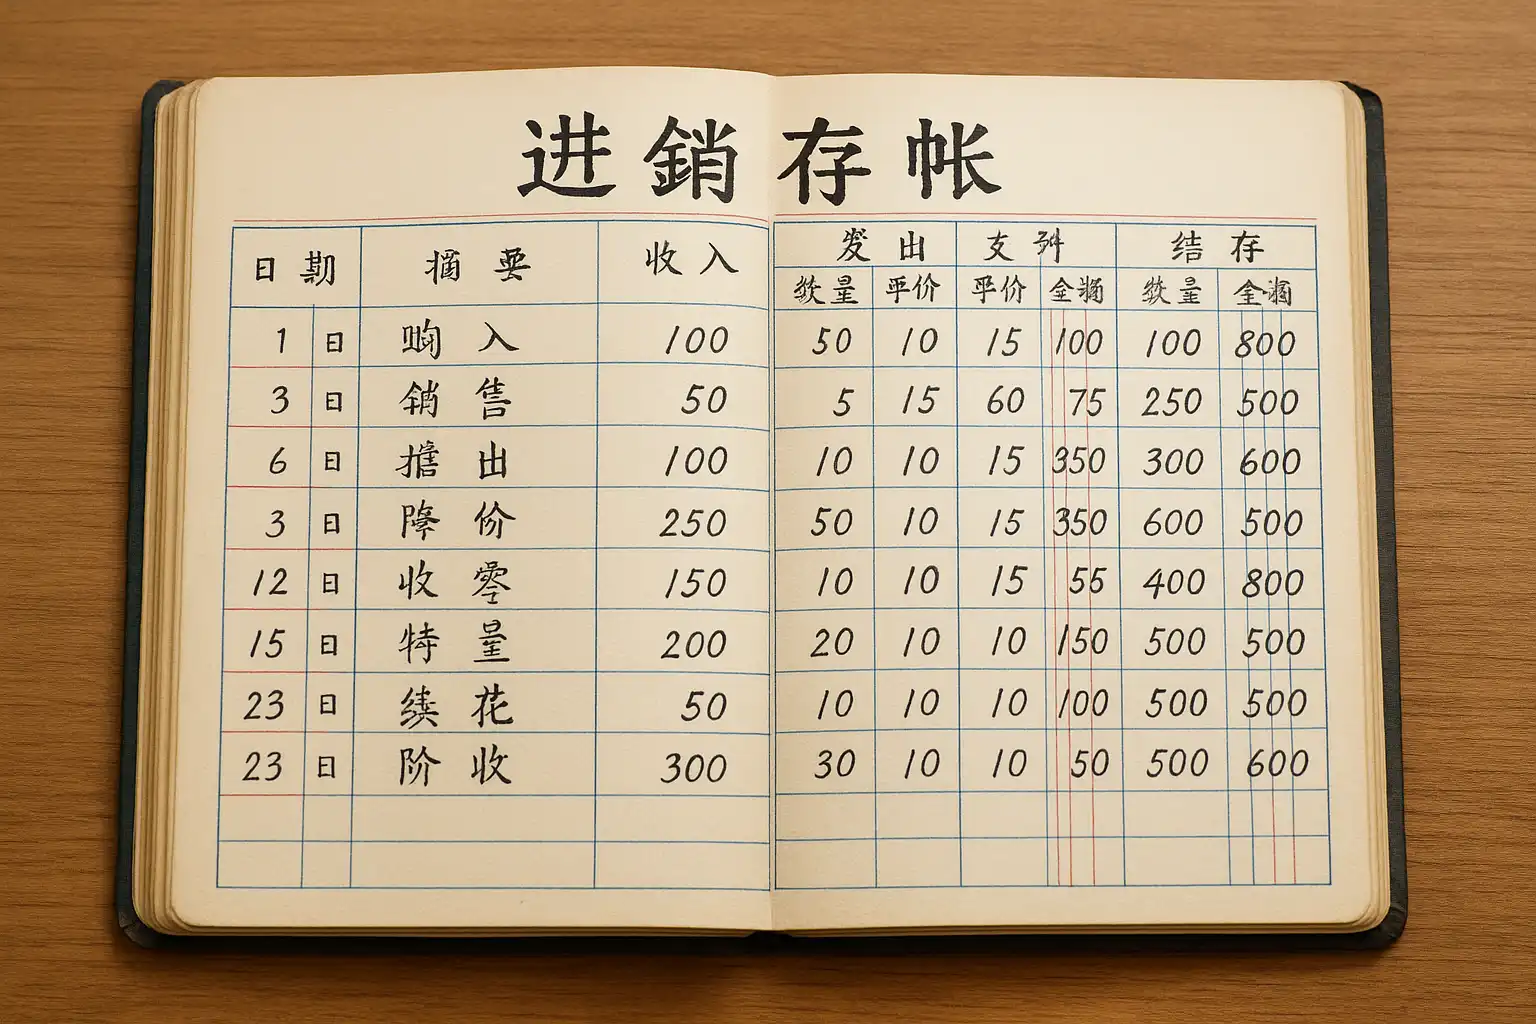 进銷存帐
日期 摘要 收入 发出 支 结存
量 平价 平价 金 量 金
1 日 入 100 50 10 15 100 100 800
3 日 销售 50 5 15 60 75 250 500
6 日 出 100 10 10 15 350 300 600
3 日 降价 250 50 10 15 350 600 500
12 日 收零 150 10 10 15 55 400 800
15 日 特量 200 20 10 10 150 500 500
23 日 续花 50 10 10 10 100 500 500
23 日 阶收 300 30 10 10 50 500 600